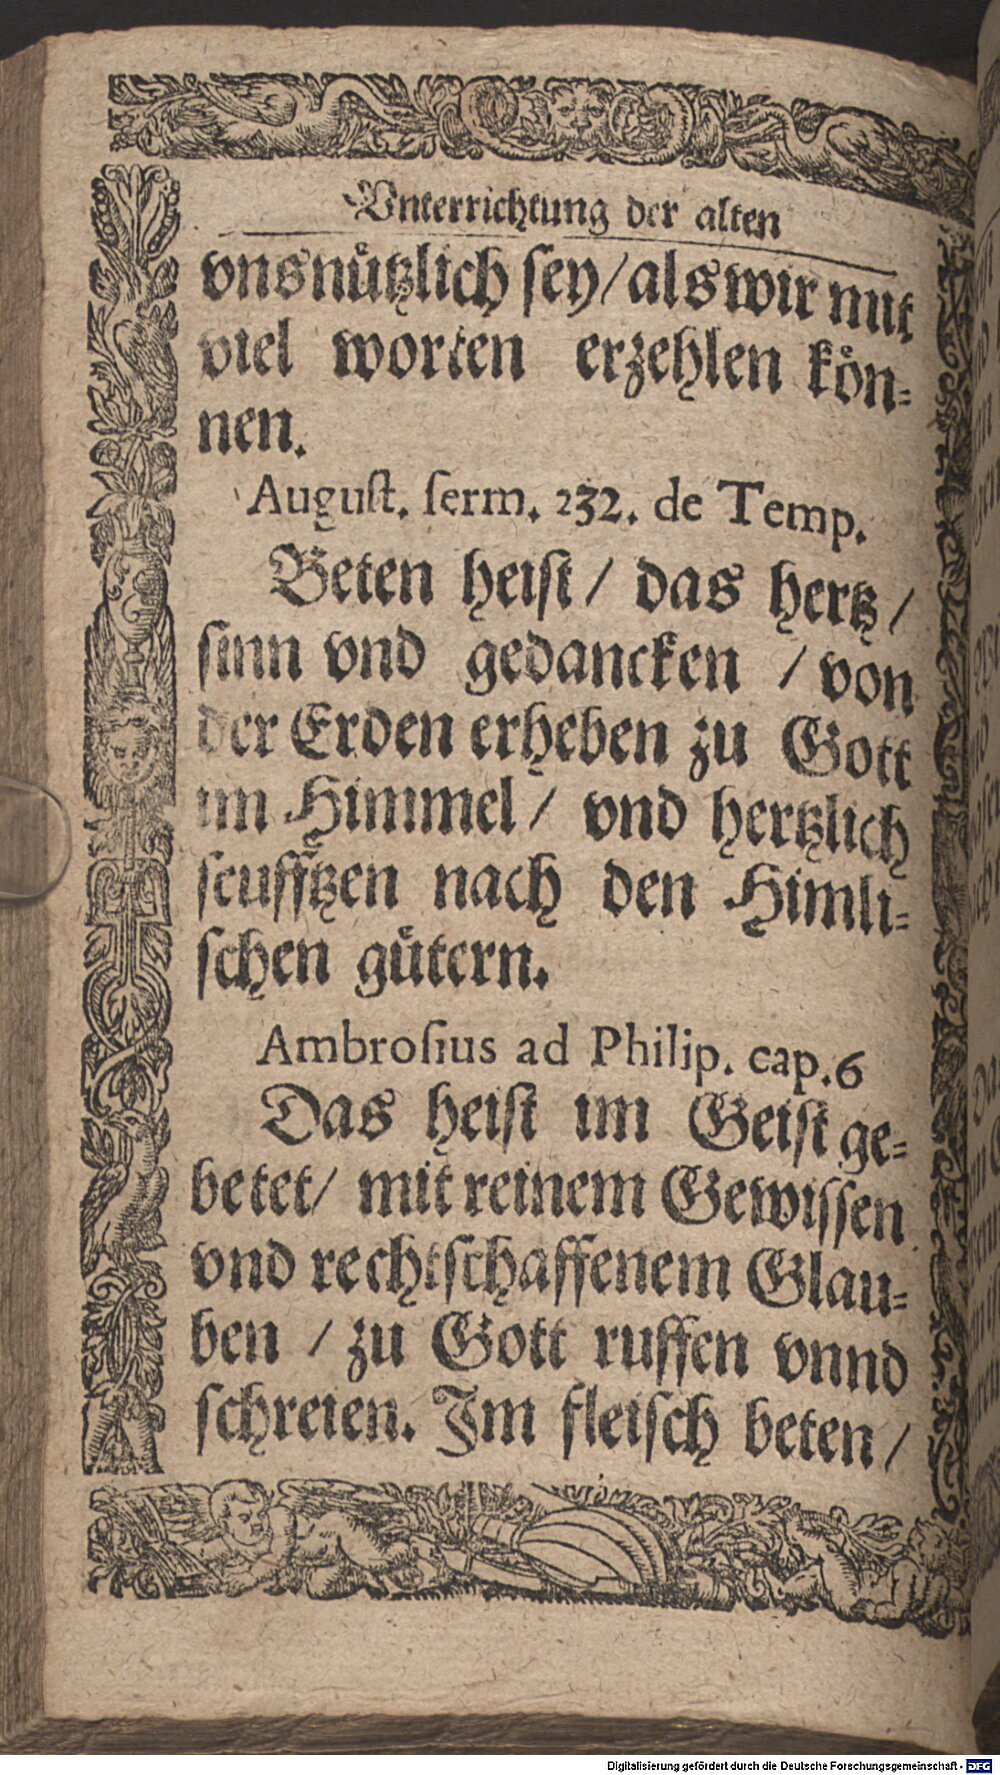 Vnterrichtung der alten
vns nuͤtzlich sey/ als wir mit
viel worten erzehlen koͤn-
nen.
Auguſt. ſerm. 232. de Temp.
Beten heiſt/ das hertz/
ſinn vnd gedancken / von
der Erden erheben zu Gott
im Himmel/ vnd hertzlich
ſeufftzen nach den Himli-
ſchen guͤtern.
Ambroſius ad Philip. cap. 6
Das heiſt im Geiſt ge-
betet/ mit reinem Gewiſſen
vnd rechtſchaffenem Glau-
ben / zu Gott ruffen vnnd
ſchreien. Im fleiſch beten/
Digitalisierung gefördert durch die Deutsche Forschungsgemeinschaft - DFG